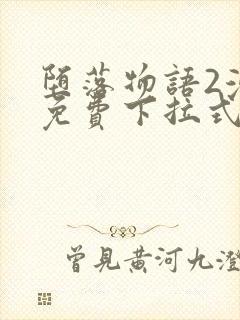 堕落物語2
免費下拉式
曾見黄河九澄